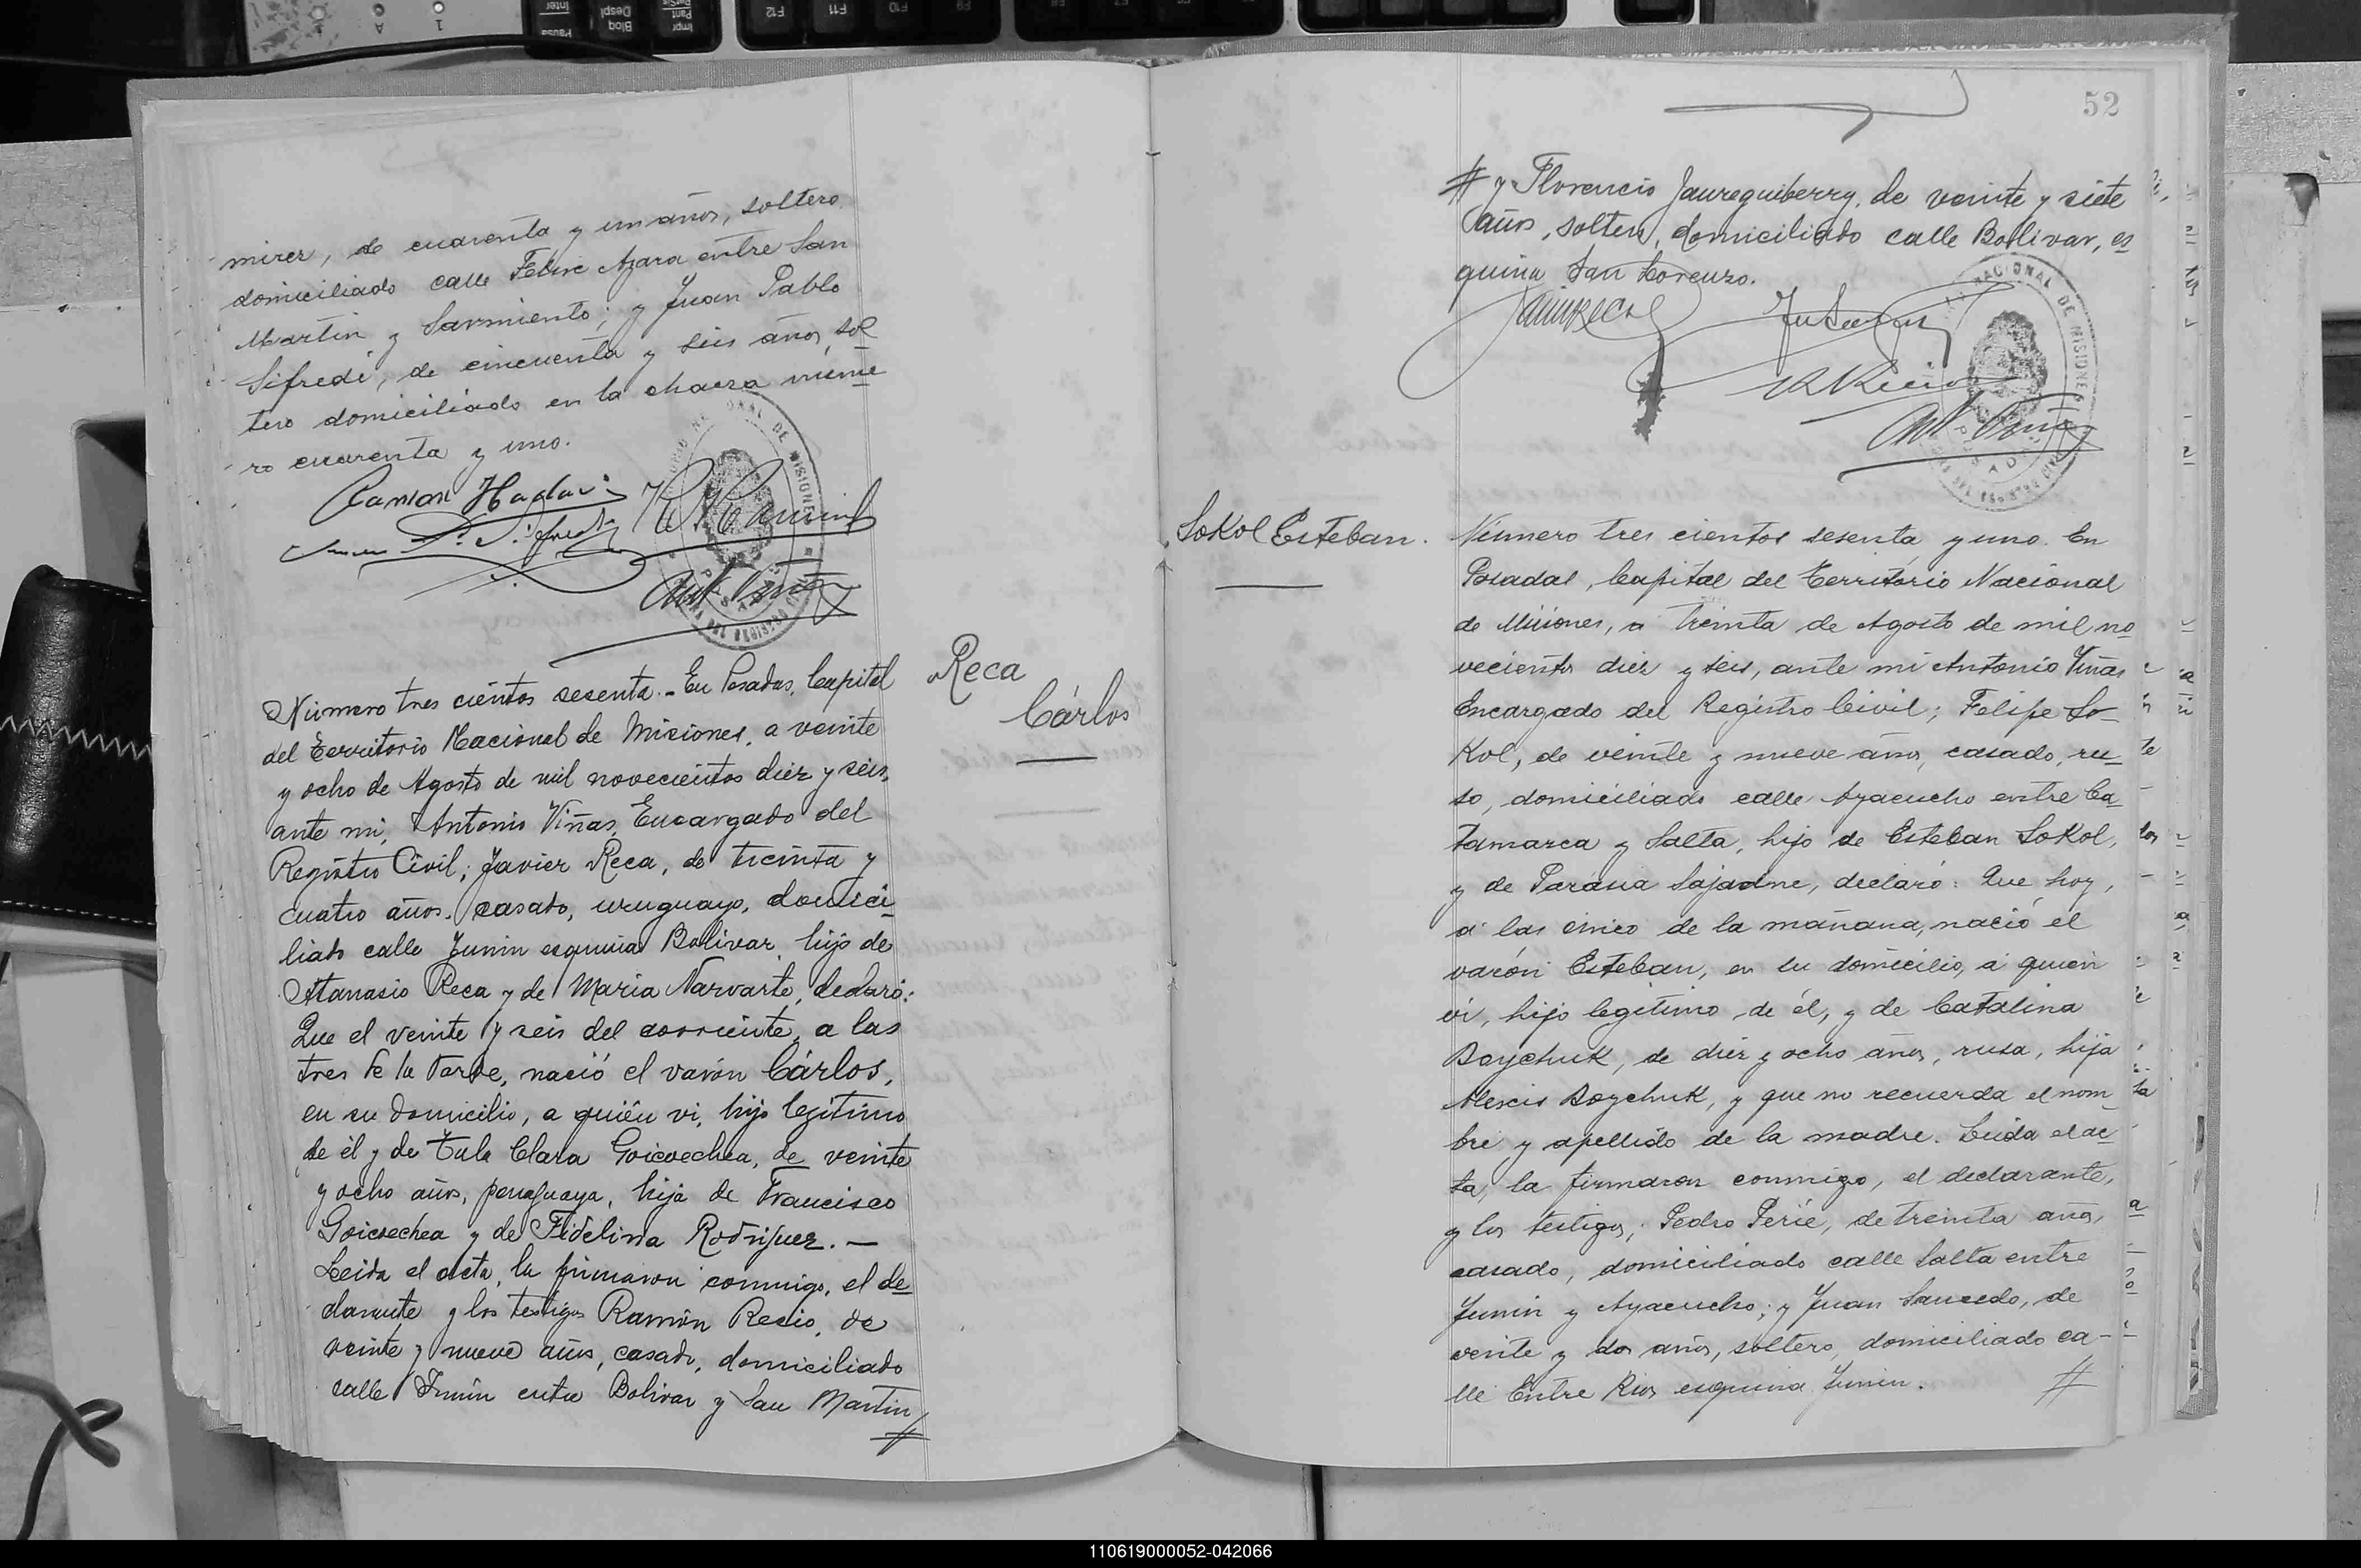 mirez, de cuarenta y un años, soltero,
domiciliado calle Felix Azara entre San
Martin y Sarmiento; y Juan Pablo
Sifredi, de cincuenta y seis años, sol
tero domiciliado en la chacra núme
ro cuarenta y uno.
Número tres cientos sesenta.- En Posadas, Capital
del Territorio Nacional de Misiones, a veinte
y ocho de Agosto de mil novecientos diez y seis,
ante mi, Antonio Viñas, Encargado del
Registro Civil; Javier Reca, de treinta y
cuatro años, casado, uruguayo, domici
liado calle Junin esquina Bolivar, hijo de
Atanasio Reca y de Maria Narvarte, declaró:
Que el veinte y seis del corriente, a las
tres de la tarde, nació el varón Cárlos,
en su domicilio, a quién vi, hijo legítimo
de él y de Tula Clara Goicoechea, de veinte
y ocho años, paraguaya, hija de Francisco
Goicoechea y de Fidelina Rodriguez. —
Leida el acta, la firmaron conmigo, el de
clarante y los testigos Ramón Recio, de
veinte y nueve años, casado, domiciliado
calle Junin entre Bolivar y San Martin
#
Reca
Cárlos
52
# y Florencio Jaureguiberry, de veinte y siete
años, soltero, domiciliado calle Bolivar, es
quina San Lorenzo.
Sokol Esteban.
Número tres cientos sesenta y uno. En
Posadas, Capital del Territorio Nacional
de Misiones, a treinta de Agosto de mil no
vecientos diez y seis, ante mi Antonio Viñas
Encargado del Registro Civil; Felipe So-
kol, de veinte y nueve años, casado, ru
so, domiciliado calle Ayacucho entre Ca
tamarca y Salta, hijo de Esteban Sokol,
y de Parasia Sajadne, declaró: Que hoy,
a las cinco de la mañana, nació el
varón Esteban, en su domicilio, a quien
vi, hijo legitimo de él, y de Catalina
Boychuk, de diez y ocho años, rusa, hija
Alexis Boychuk, y que no recuerda el nom
bre y apellido de la madre. Leida el ac
ta, la firmaron conmigo, el declarante,
y los testigos; Pedro Perié, de treinta años,
casado, domiciliado calle Salta entre
Junin y Ayacucho; y Juan Saucedo, de
veinte y dos años, soltero, domiciliado ca-
lle Entre Rios esquina Junin. #
110619000052-042066